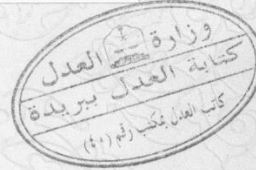 وزارة العدل
كتابة العدل ببريدة
كاتب العدل بمكتب رقم (٤٠)